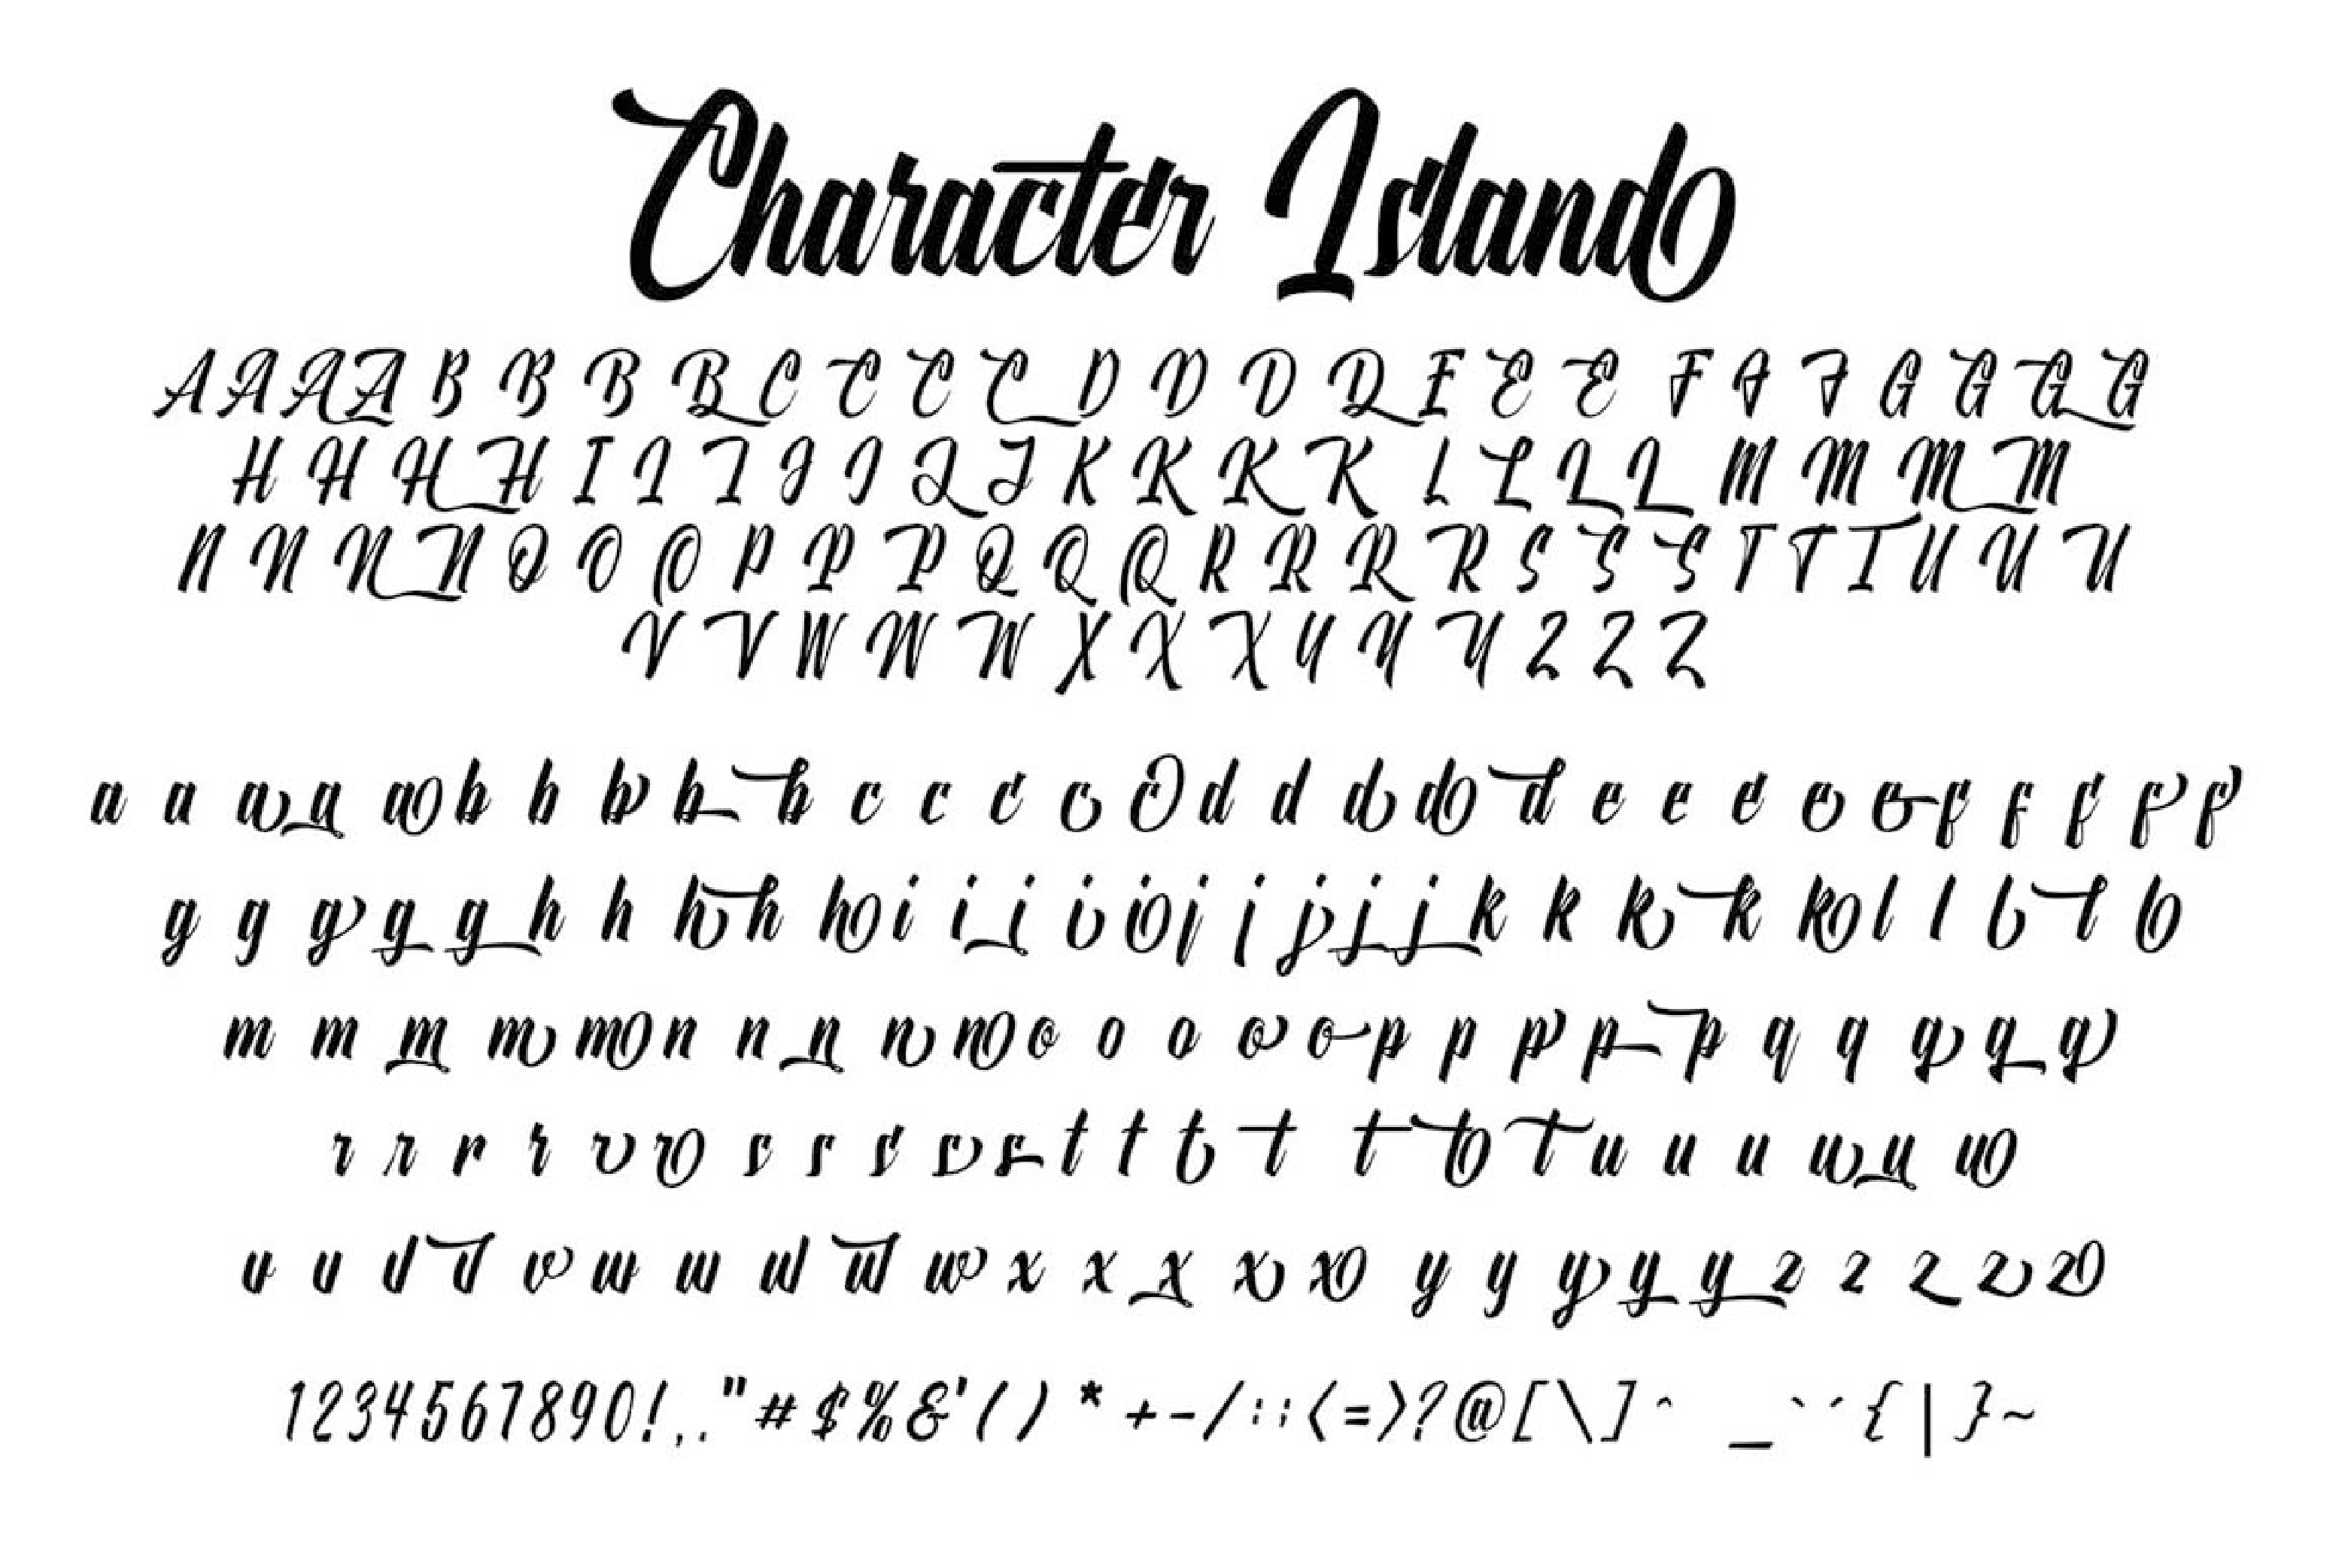 Character Island
A A A A B B B B C C C C D D D D E E E F F F G G G G
H H H H I I I J J J J K K K K L L L L M M M M
N N N N O O O P P P Q Q Q R R R R S S S T T T U U U
V V W W W X X X Y Y Y Z Z Z
a a a a a b b b b b c c c c c d d d d d e e e e e f f f f f
g g g g g h h h h h i i i i i j j j j j k k k k k l l l l l
m m m m m n n n n n o o o o o p p p p p q q q q q
r r r r r r s s s s s t t t t t t t u u u u u u
v v v v v w w w w w x x x x x y y y y y z z z z z
1234567890!,."#$%&'()*+-/:;<=>?@[\]^_`´{|}~